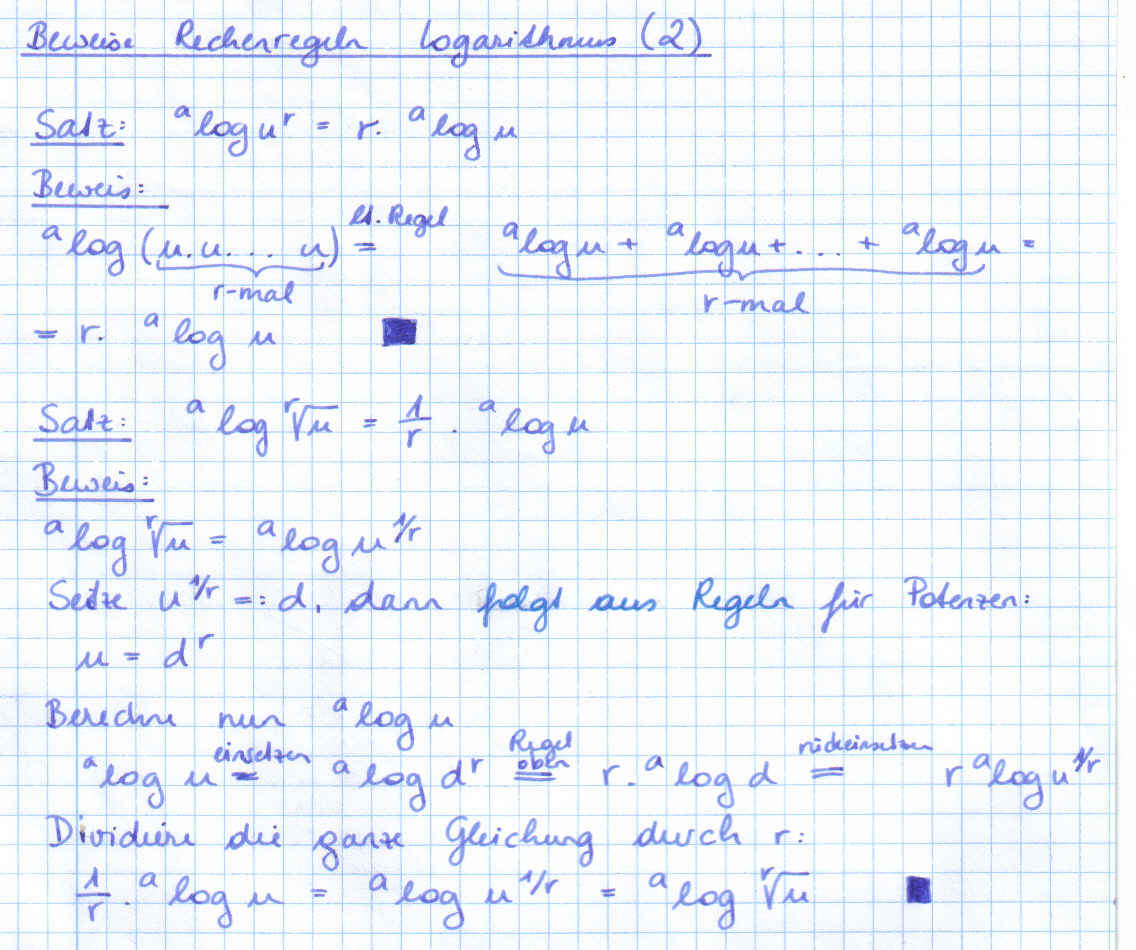 Beweise Rechenregeln Logarithmus (2)
Satz: ᵃlog uʳ = r. ᵃlog u
Beweis:
ᵃlog (u.u. ... u) = lt. Regel ᵃlog u + ᵃlog u + ... + ᵃlog u =
r-mal r-mal
= r. ᵃlog u ■
Satz: ᵃlog ʳ√u = 1/r . ᵃlog u
Beweis:
ᵃlog ʳ√u = ᵃlog u^1/r
Setze u^1/r =: d, dann folgt aus Regeln für Potenzen:
u = dʳ
Berechne nun ᵃlog u
einsetzen Regel oben rückeinsetzen
ᵃlog u = ᵃlog dʳ = r. ᵃlog d = r ᵃlog u^1/r
Dividiere die ganze Gleichung durch r:
1/r . ᵃlog u = ᵃlog u^1/r = ᵃlog ʳ√u ■